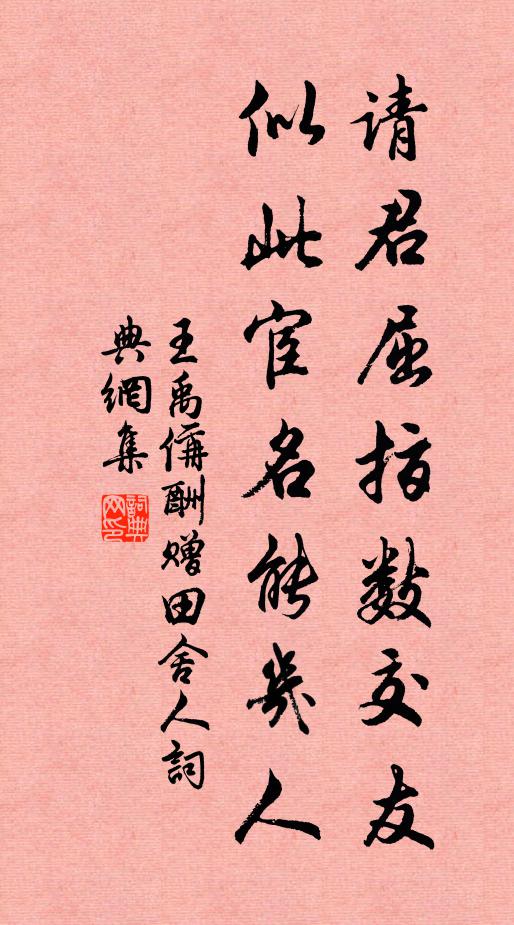 请君屈指数交友
似此官名能几人
王禹偁酬赠田舍人詞
典網集
詞典网印